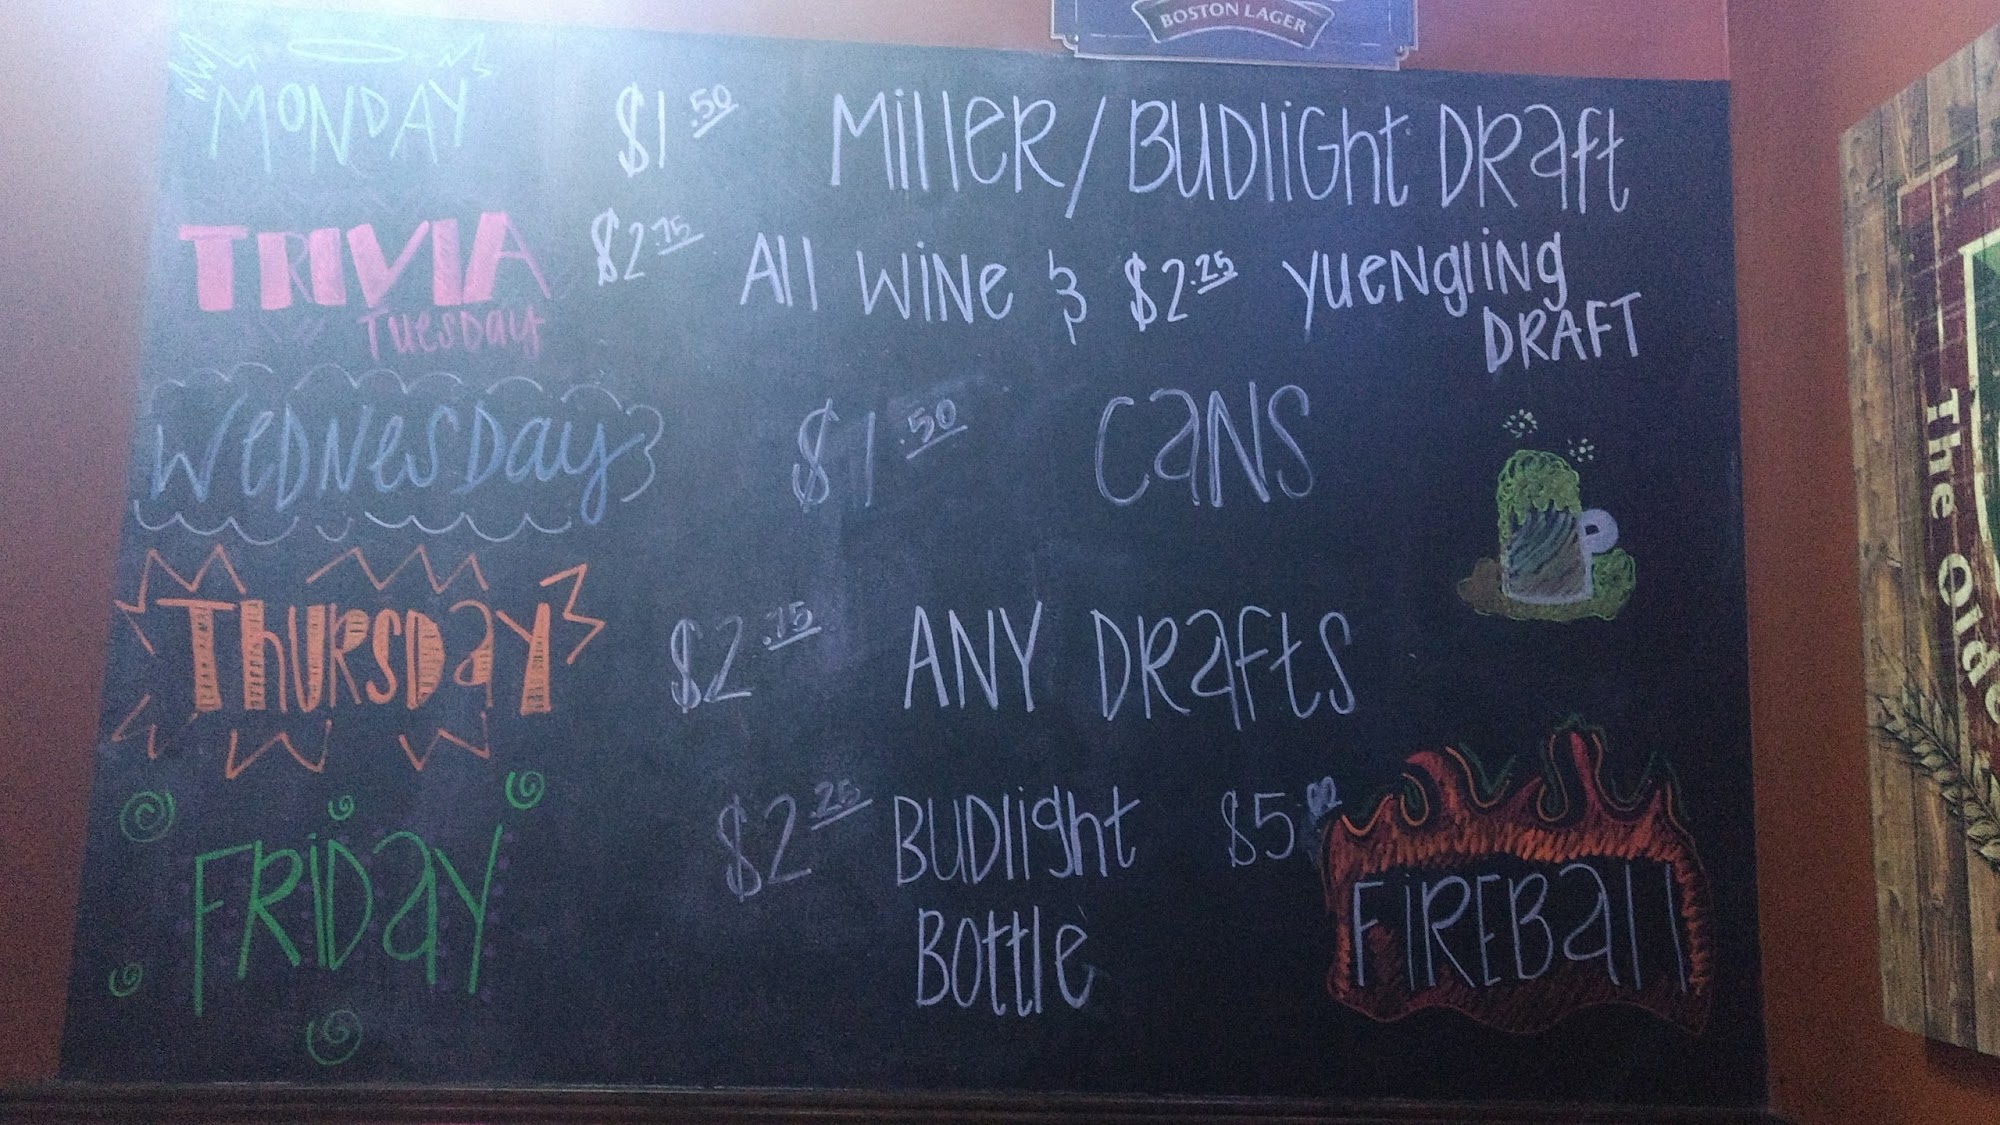 BOSTON LAGER
MONDAY $1.50 Miller/Budlight Draft
TRIVIA $2.75 All Wine & $2.25 Yuengling
Tuesday DRAFT
Wednesday $1.50 Cans
Thursday $2.75 ANY Drafts
Friday $2.25 Budlight $5.00 FIREBall
Bottle
The Olde